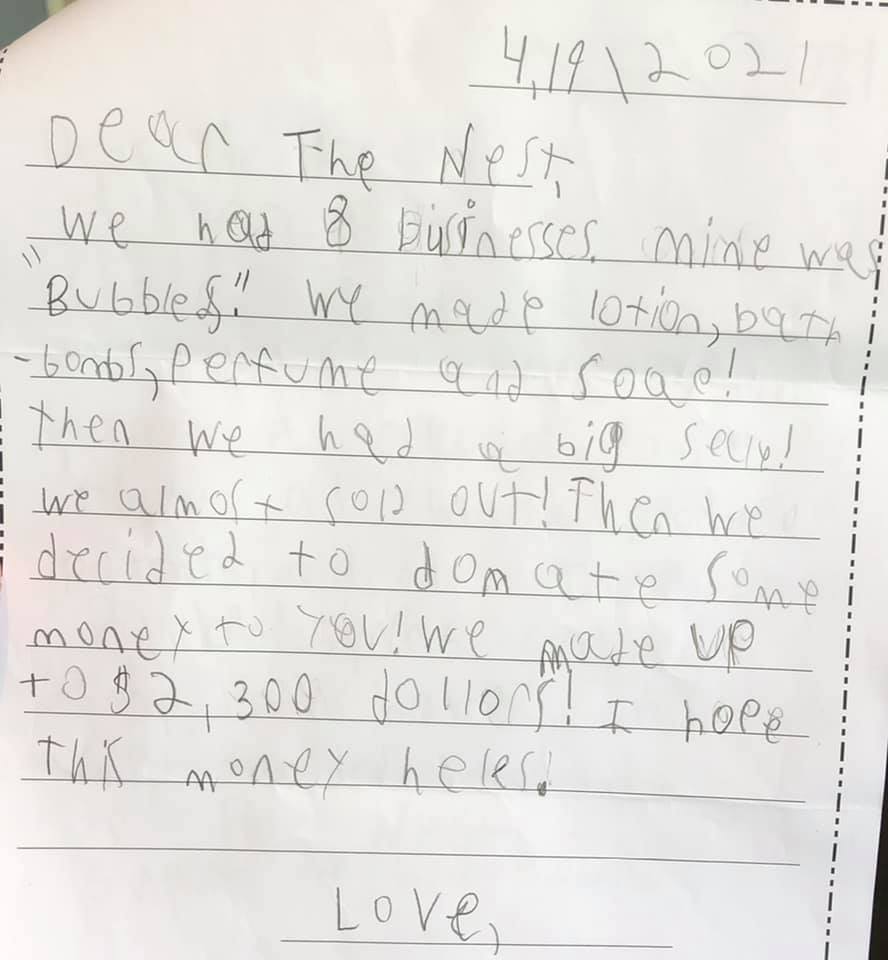 4,19\2021
Dear The Nest,
we had 8 Businesses. mine was
"Bubbles." we made lotion, bath
-bombs, perfume and soap!
then we had a big selly!
we almost sold out! Then we
decided to domate some
money to you! we made up
to $2,300 dollors! I hope
this money helps.
Love,